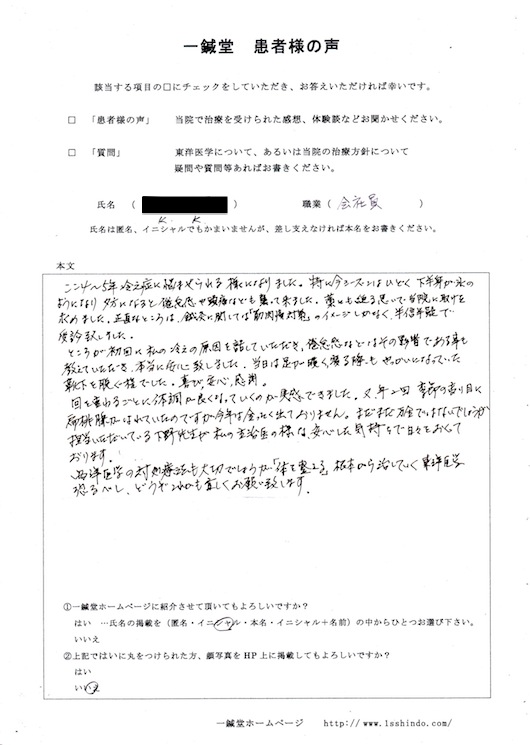 一鍼堂 患者様の声
該当する項目の□にチェックをしていただき、お答えいただければ幸いです。
□ 「患者様の声」 当院で治療を受けられた感想、体験談などお聞かせください。
□ 「質問」 東洋医学について、あるいは当院の治療方針について
疑問や質問等あればお書きください。
氏名 ( ) 職業 ( 会社員 )
K. K.
氏名は匿名、イニシャルでもかまいませんが、差し支えなければ本名をお書きください。
本文
ここ4〜5年冷え症に悩ませられる様になりました。特に今シーズンはひどく下半身が氷の
ようになり夕方になると倦怠感や頭痛なども襲って来ました。藁にも迫る思いで当院に助けを
求めました。正直なところは、鍼灸に関しては「筋肉痛対策」のイメージしかなく、半信半疑で
受診致しました。
ところが初回に私の冷えの原因を話していただき、倦怠感などはその影響である事も
教えていただき、本当に安心致しました。当日は足が暖く寝る際も、やっかいになっていた
靴下を脱ぐ程でした。喜び、安心、感謝。
回を重ねるごとに体調が良くなっていくのが実感できました。又、年2回 季節の変り目に
扁桃腺がはれていたのですが今年は全く出ておりません。まだまだ万全ではないでしょうが
担当いただいている下野先生が私の主治医の様な、安心した気持ちで日々をおくって
おります。
西洋医学の対処療法も大切でしょうが「体を整える」根本から治していく東洋医学
恐るべし、どうぞこれからも宜しくお願い致します。
①一鍼堂ホームページに紹介させて頂いてもよろしいですか？
はい …氏名の掲載を（匿名・イニシャル・本名・イニシャル＋名前）の中からひとつお選び下さい。
いいえ
②上記ではいに丸をつけられた方、顔写真をHP上に掲載してもよろしいですか？
はい
いいえ
一鍼堂ホームページ http://www.1sshindo.com/